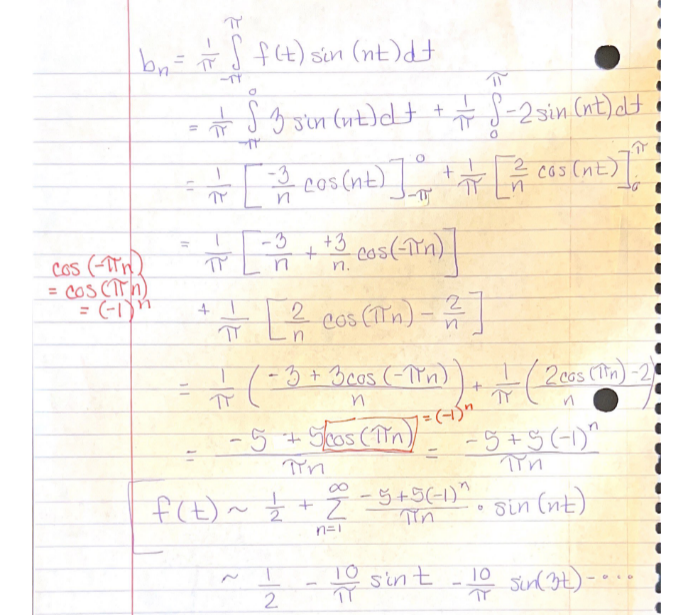 bₙ = 1/π ∫_{-π}^{π} f(t) sin(nt)dt
= 1/π ∫_{-π}^{0} 3 sin(nt)dt + 1/π ∫_{0}^{π} -2 sin(nt)dt
= 1/π [ -3/n cos(nt) ]_{-π}^{0} + 1/π [ 2/n cos(nt) ]_{0}^{π}
= 1/π [ -3/n + +3/n. cos(-πn) ]
cos(-πn)
= cos(πn)
= (-1)ⁿ
+ 1/π [ 2/n cos(πn) - 2/n ]
= 1/π ( (-3 + 3cos(-πn))/n ) + 1/π ( (2cos(πn) - 2)/n )
= (-5 + 5cos(πn))/(πn) = (-5 + 5(-1)ⁿ)/(πn)
= (-1)ⁿ
f(t) ~ 1/2 + Σ_{n=1}^{∞} (-5+5(-1)ⁿ)/(πn) · sin(nt)
~ 1/2 - 10/π sin t - 10/π sin(3t) - ····